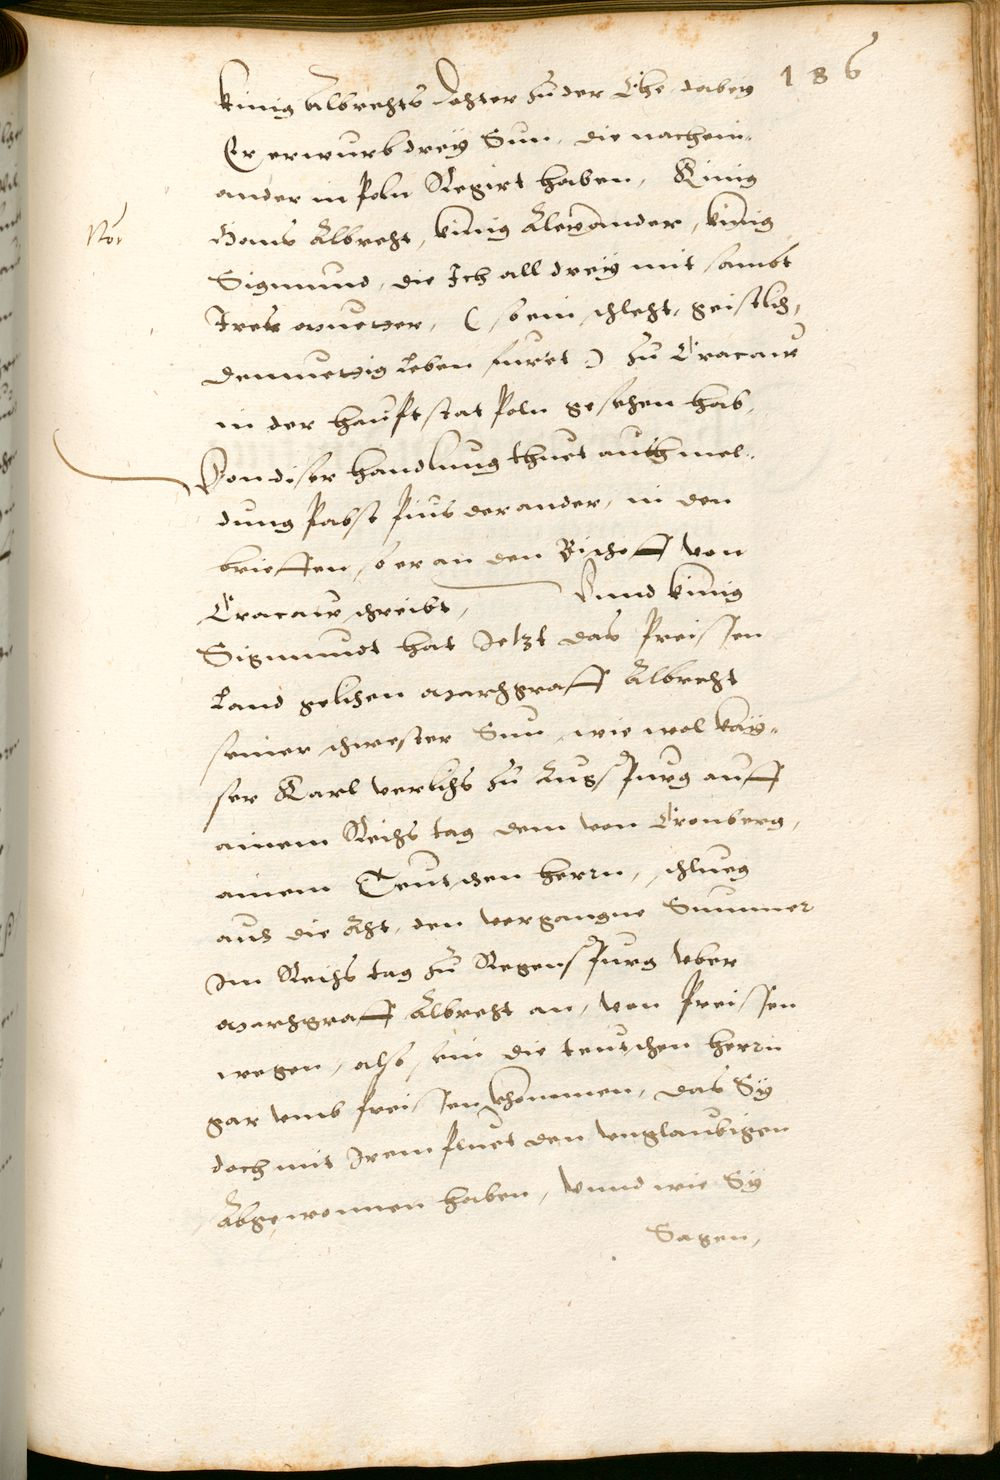 186
künig Albrechts dochter zu der Ehe, dabey
Er erwurb drey Sun, die nachein¬
ander in Poln Regirt haben, Künig
Hans Albrecht, künig Alexander, künig
Not
Sigmund, die Ich all dreÿ mit sambt
Irer muetter, (so ein schlecht, geistlich,
demuettig leben füret) zu Cracaw
in der hauptstat Poln gesehen hab,
Von diser handlung thuet auch mel¬
dung Pabst Pius der ander, in den
brieffen, so er an den Bischoff von
Cracaw schreibt, Vnnd künig
Sigmundt hat Jetzt das Preissen
land gelihen Marchgraff Albrecht
seiner schwester Sun, wie wol kaÿ¬
ser Karl verlichs zu Augspurg auff
ainem Reichs tag dem von Cronberg,
ainem Teutschen herrn, schlueg
aus die Acht, den vergangne Summer
Im Reichs tag zu Regenspurg vber
Marchgraff Albrecht an, von Preissen
wegen, also sein die teutschen herrn
gar vmb Preissen khommen, das Sÿ
doch mit Irem pluet den vnglaubigen
Abgewonnen haben, Vnnd wie Sÿ
Sagen,